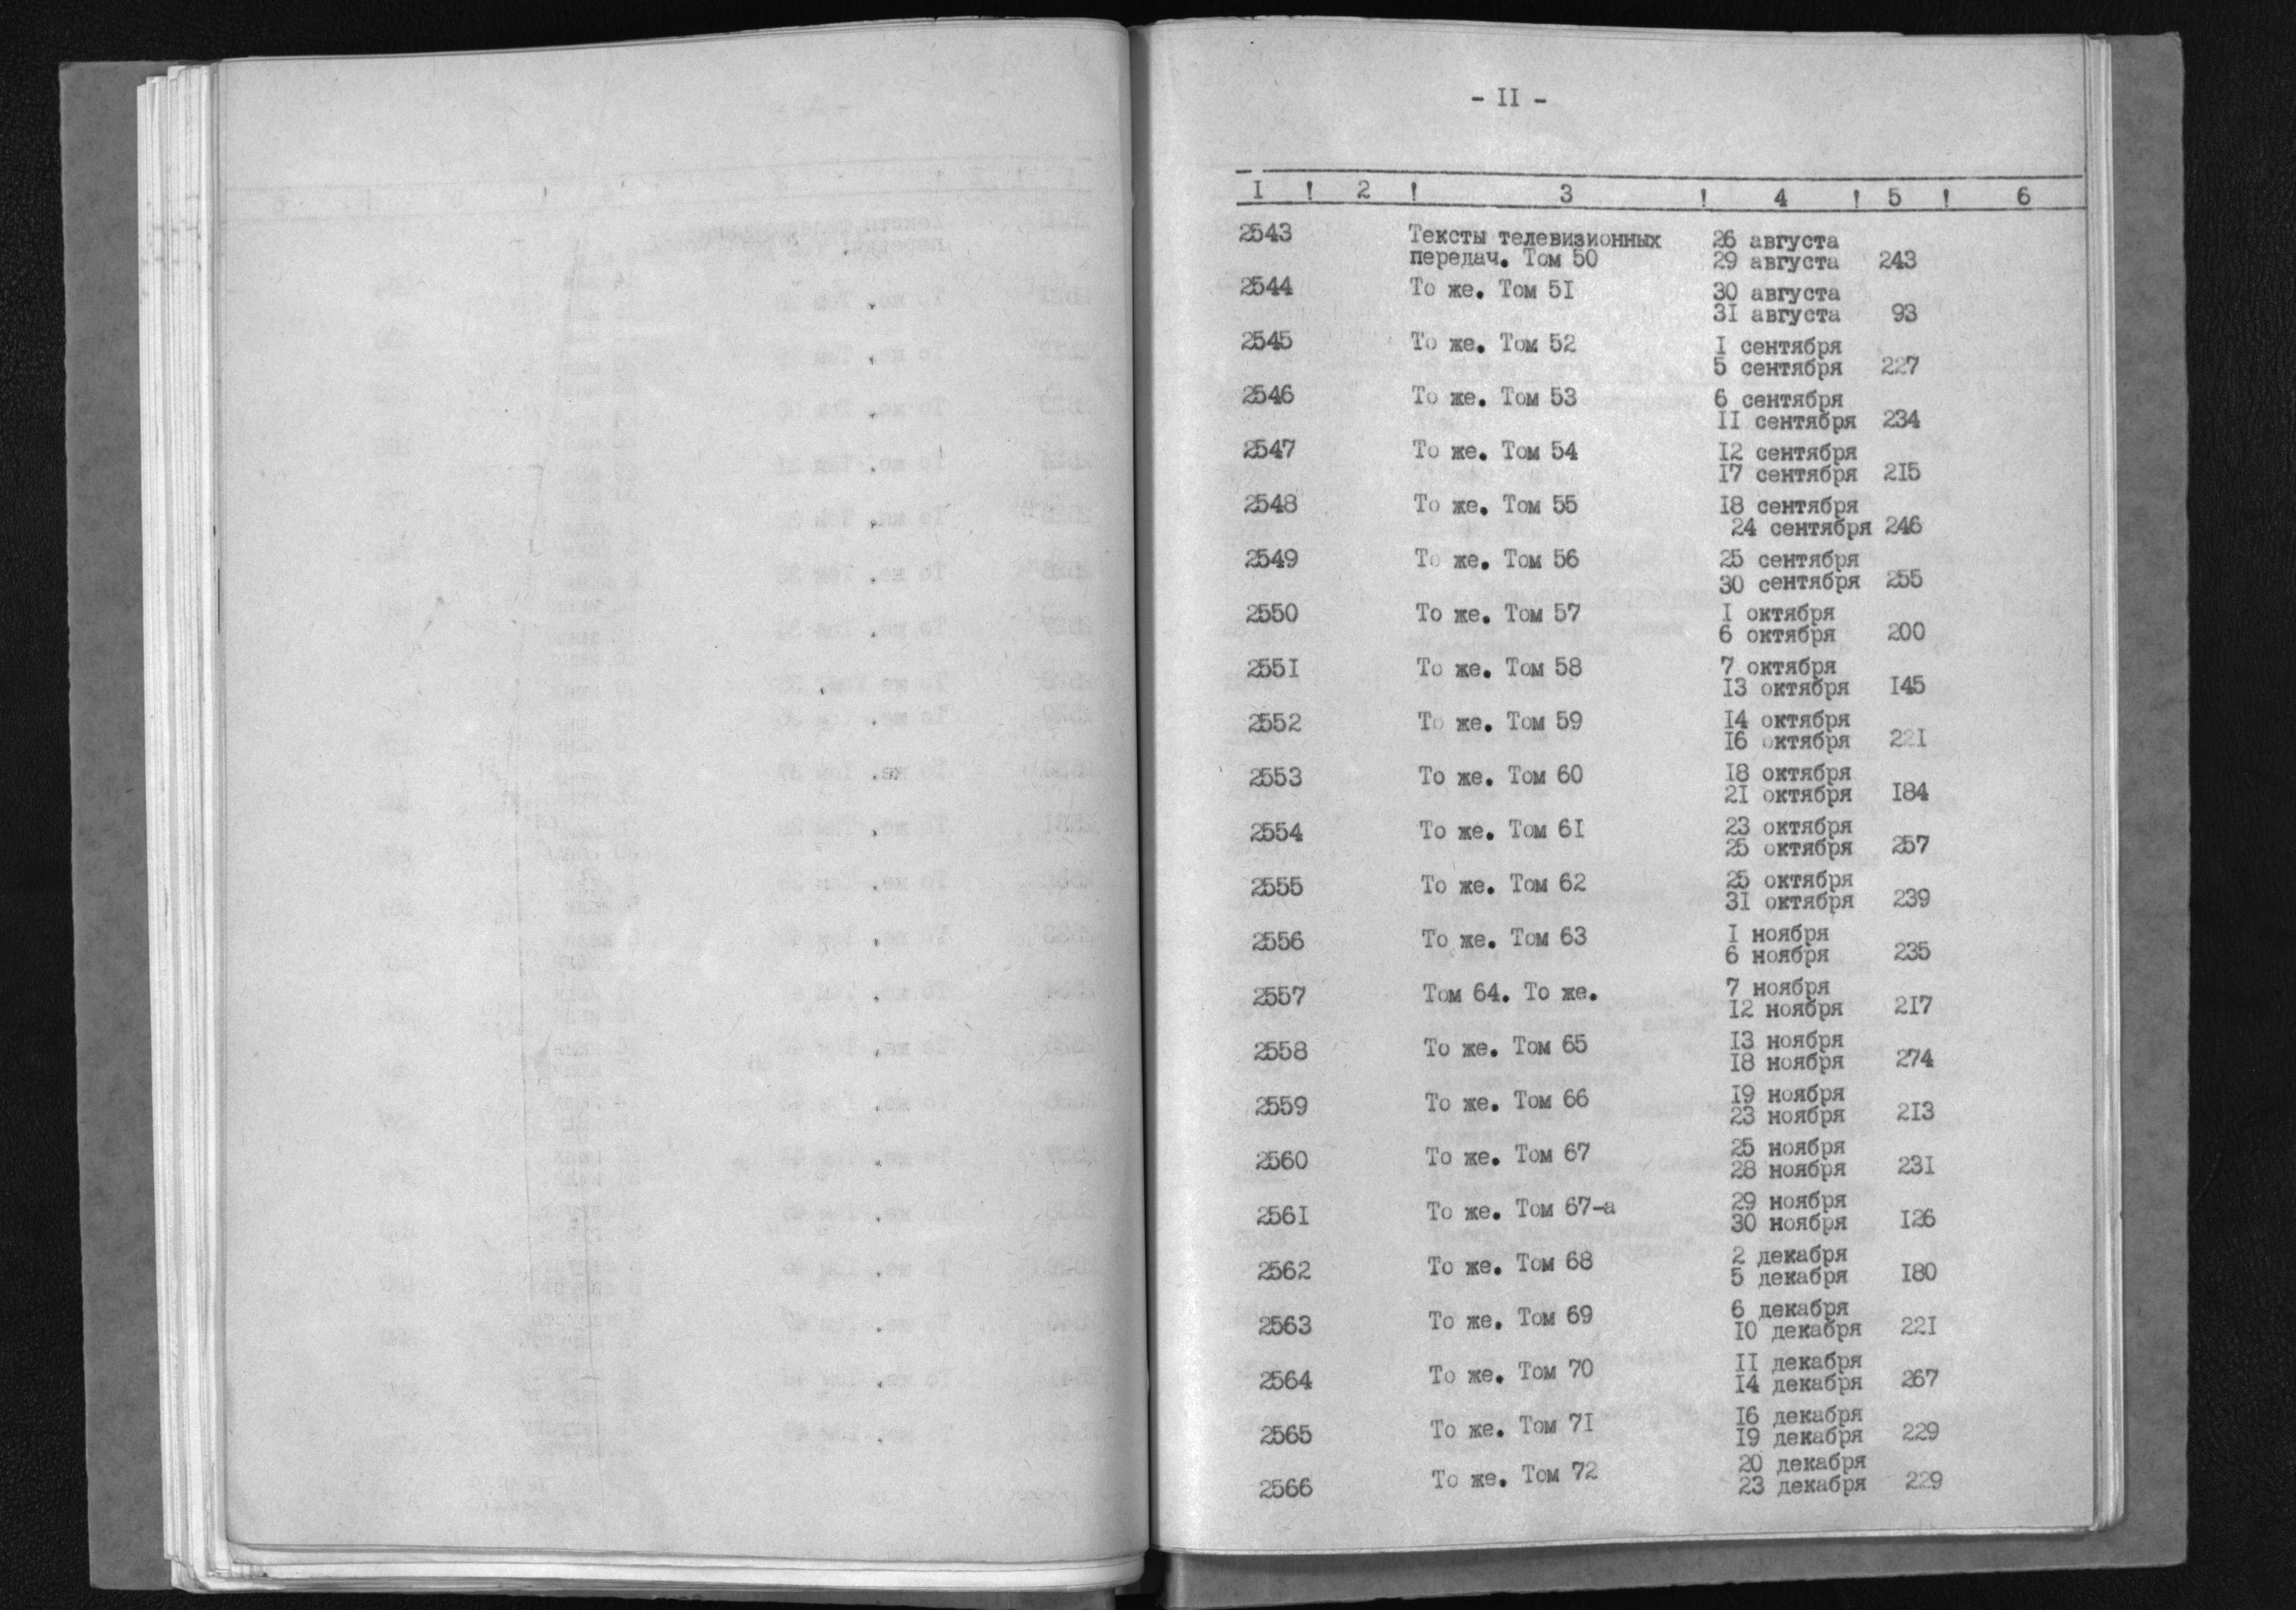 - II -
I ! 2 ! 3 ! 4 ! 5 ! 6
2543 Тексты телевизионных 26 августа
передач. Том 50 29 августа 243
2544 То же. Том 5I 30 августа
3I августа 93
2545 То же. Том 52 I сентября
5 сентября 227
2546 То же. Том 53 6 сентября
II сентября 234
2547 То же. Том 54 I2 сентября
I7 сентября 2I5
2548 То же. Том 55 I8 сентября
24 сентября 246
2549 То же. Том 56 25 сентября
30 сентября 255
2550 То же. Том 57 I октября
6 октября 200
255I То же. Том 58 7 октября
I3 октября I45
2552 То же. Том 59 I4 октября
I6 октября 22I
2553 То же. Том 60 I8 октября
2I октября I84
2554 То же. Том 6I 23 октября
25 октября 257
2555 То же. Том 62 25 октября
3I октября 239
2556 То же. Том 63 I ноября
6 ноября 235
2557 Том 64. То же. 7 ноября
I2 ноября 2I7
2558 То же. Том 65 I3 ноября
I8 ноября 274
2559 То же. Том 66 I9 ноября
23 ноября 2I3
2560 То же. Том 67 25 ноября
28 ноября 23I
256I То же. Том 67-а 29 ноября
30 ноября I26
2562 То же. Том 68 2 декабря
5 декабря I80
2563 То же. Том 69 6 декабря
I0 декабря 22I
2564 То же. Том 70 II декабря
I4 декабря 267
2565 То же. Том 7I I6 декабря
I9 декабря 229
2566 То же. Том 72 20 декабря
23 декабря 229